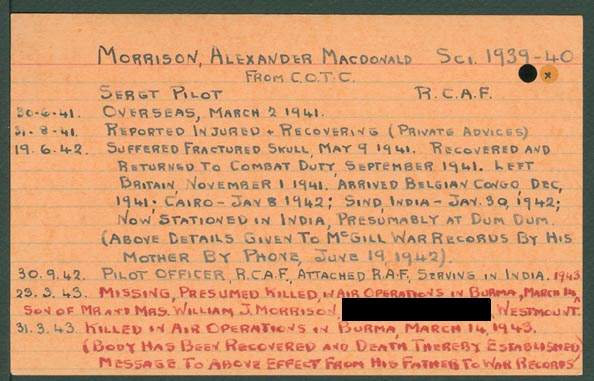 MORRISON, ALEXANDER MACDONALD SCI. 1939-40
FROM C.O.T.C.
SERGT PILOT R.C.A.F.
30-6-41. OVERSEAS, MARCH 2 1941.
31-8-41. REPORTED INJURED + RECOVERING (PRIVATE ADVICES)
19.6.42. SUFFERED FRACTURED SKULL, MAY 9 1941. RECOVERED AND
RETURNED TO COMBAT DUTY, SEPTEMBER 1941. LEFT
BRITAIN, NOVEMBER 1 1941. ARRIVED BELGIAN CONGO, DEC,
1941; CAIRO - JAN 8 1942; SIND, INDIA - JAN. 30, 1942;
NOW STATIONED IN INDIA, PRESUMABLY AT DUM DUM.
(ABOVE DETAILS GIVEN TO MCGILL WAR RECORDS BY HIS
MOTHER BY PHONE, JUNE 19, 1942).
30.9.42. PILOT OFFICER, R.C.A.F., ATTACHED R.A.F., SERVING IN INDIA. 1943
23.3.43. MISSING, PRESUMED KILLED, IN AIR OPERATIONS IN BURMA, MARCH 14
SON OF MR AND MRS. WILLIAM J. MORRISON, WESTMOUNT.
31.3.43. KILLED IN AIR OPERATIONS IN BURMA, MARCH 14, 1943.
(BODY HAS BEEN RECOVERED AND DEATH THEREBY ESTABLISHED)
MESSAGE TO ABOVE EFFECT FROM HIS FATHER TO WAR RECORDS